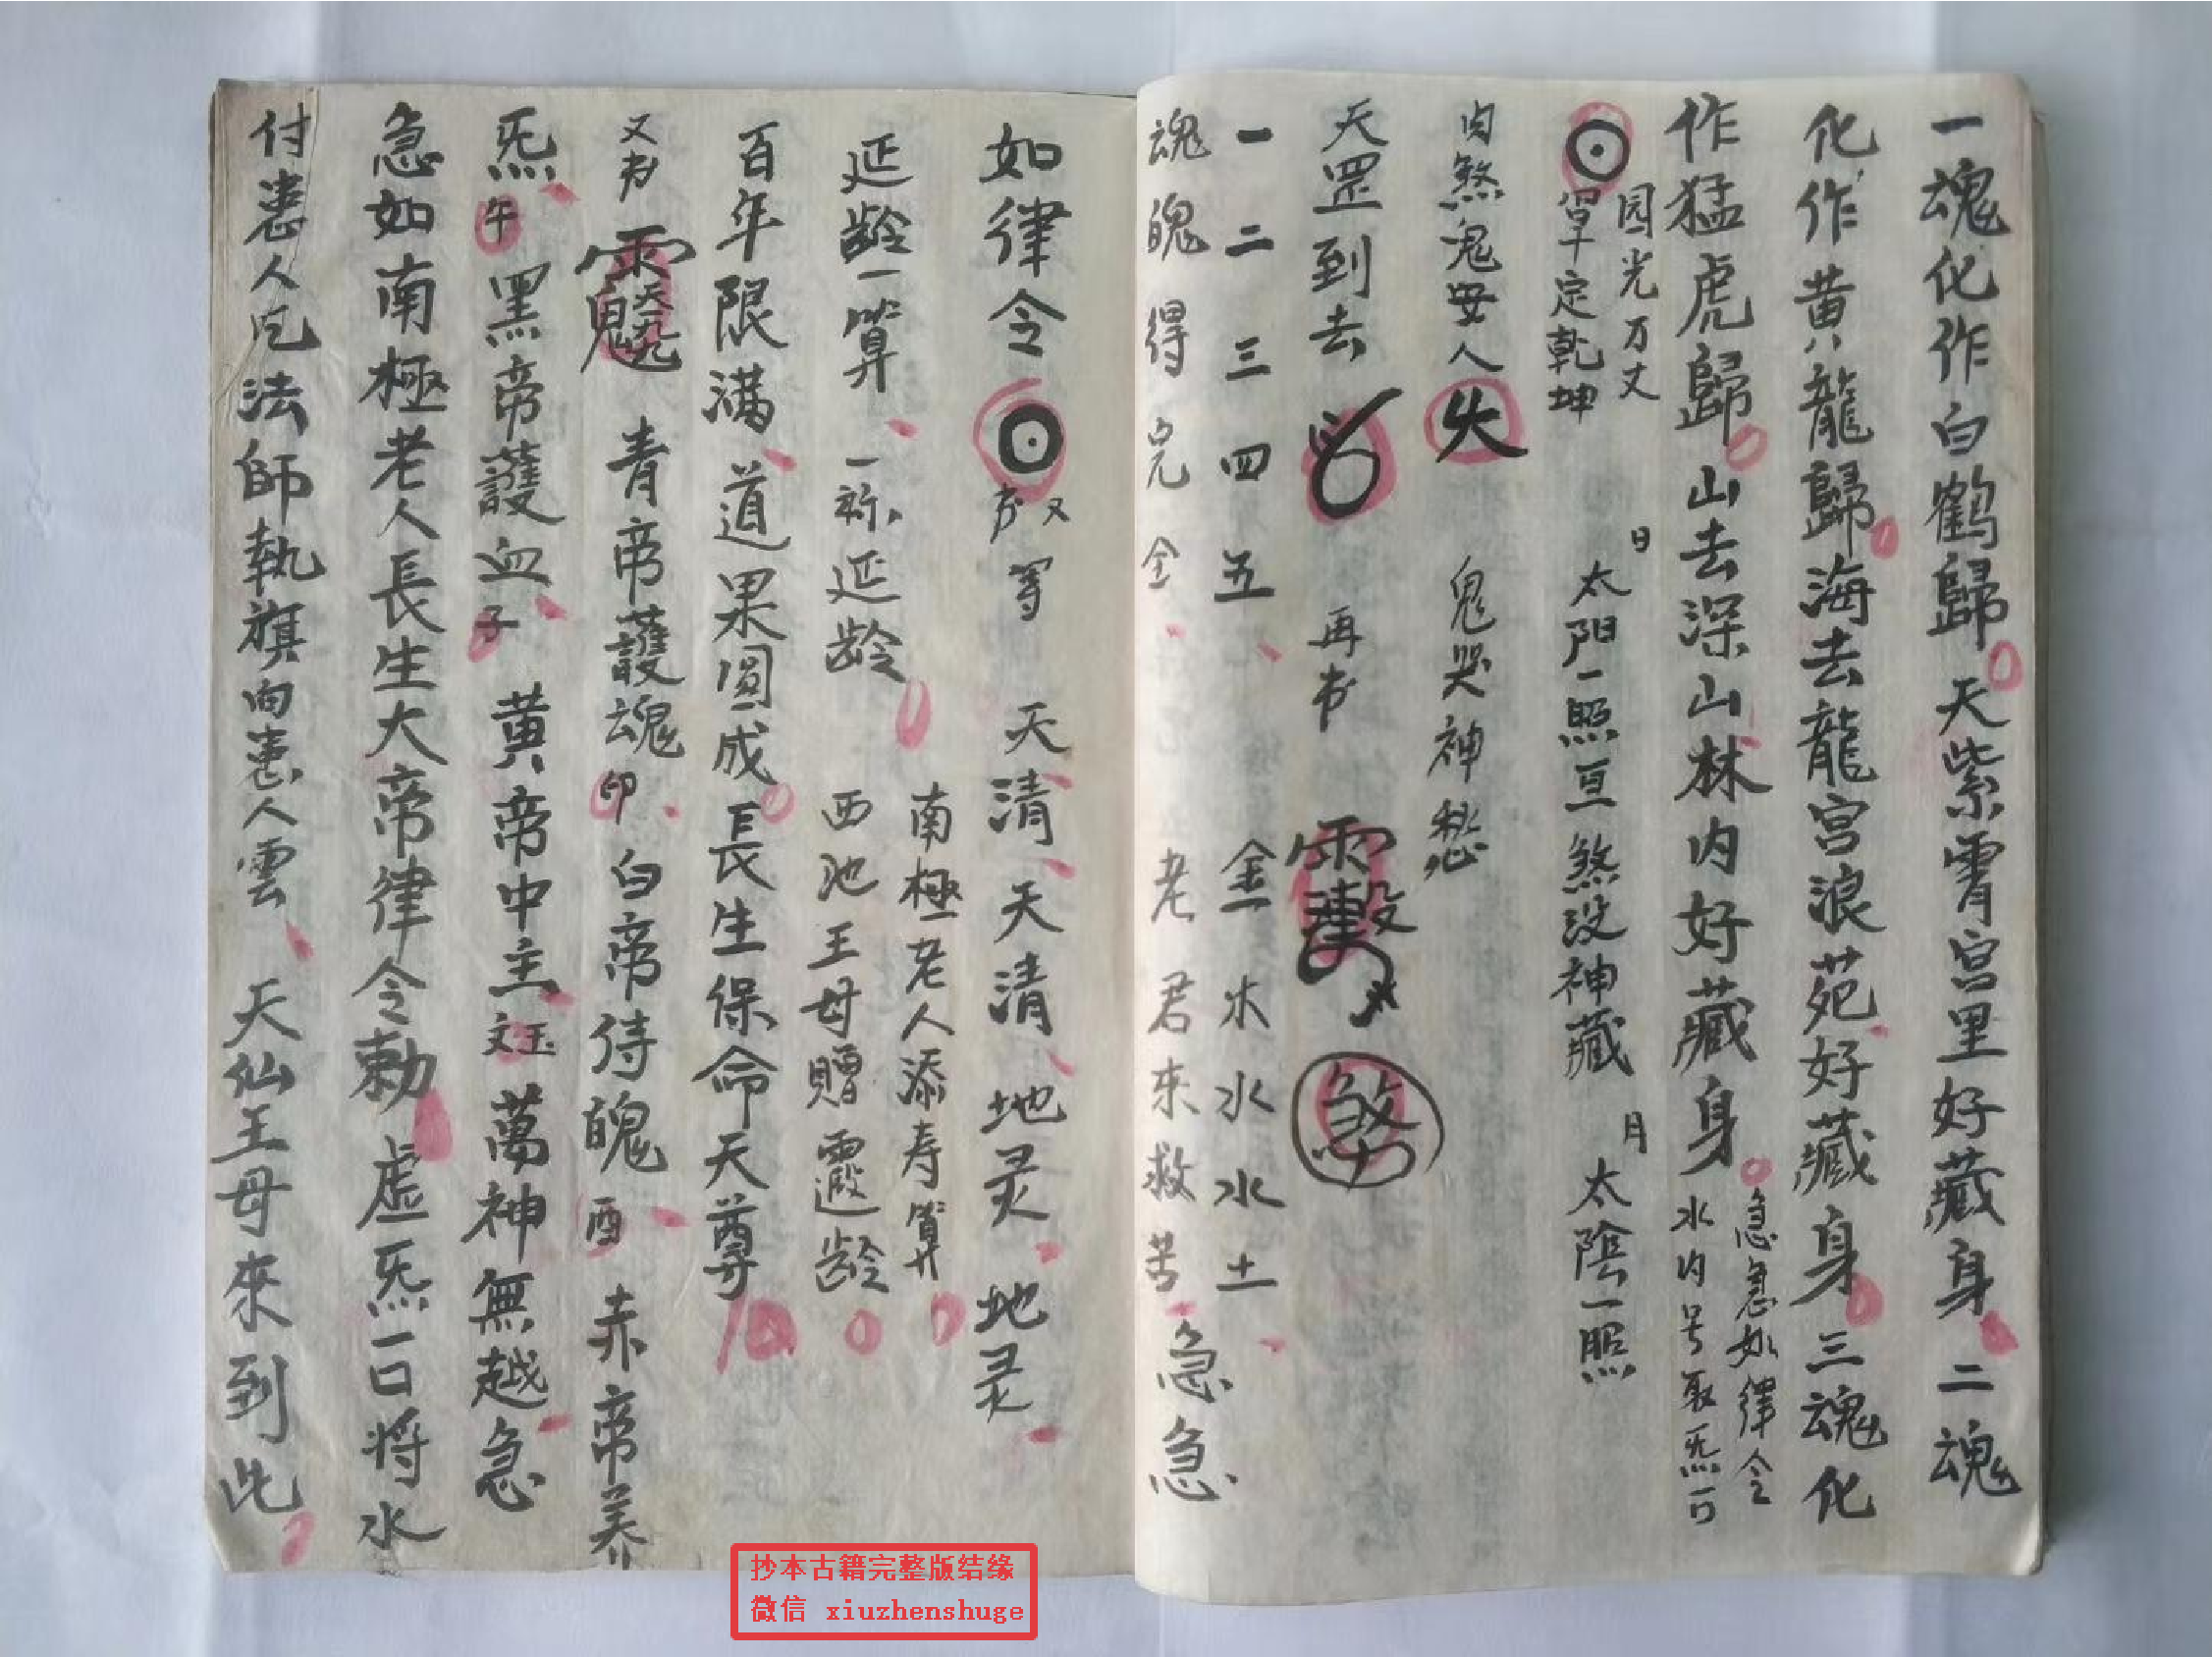 一魂化作白鹤歸天紫霄宫里好藏身二魂
化作黄龍歸海去龍宫浪苑好藏身三魂化
作猛虎歸山去深山林内好藏身急急如律令
水内号取炁一口
园光万丈
罩定乾坤
日 太阳一照亘煞没神藏
月 太陰一照
内煞鬼安人 鬼哭神愁
天罡到去 再书
一二三四五 金木水水土
魂魄得完全 老君來救苦急急
如律令 又书 写 天清天清地灵地灵
延龄一算一祢延龄
南極老人添寿算
西池王母赠霞龄
百年限满道果圓成長生保命天尊
又书 青帝護魂卯白帝侍魄酉赤帝养
炁午黑帝護血子黄帝中主玉文萬神無越急
急如南極老人長生大帝律令勅虚炁一口将水
付患人吃法師執旗向患人雲天仙王母來到此
抄本古籍完整版结缘
微信 xiuzhenshuge